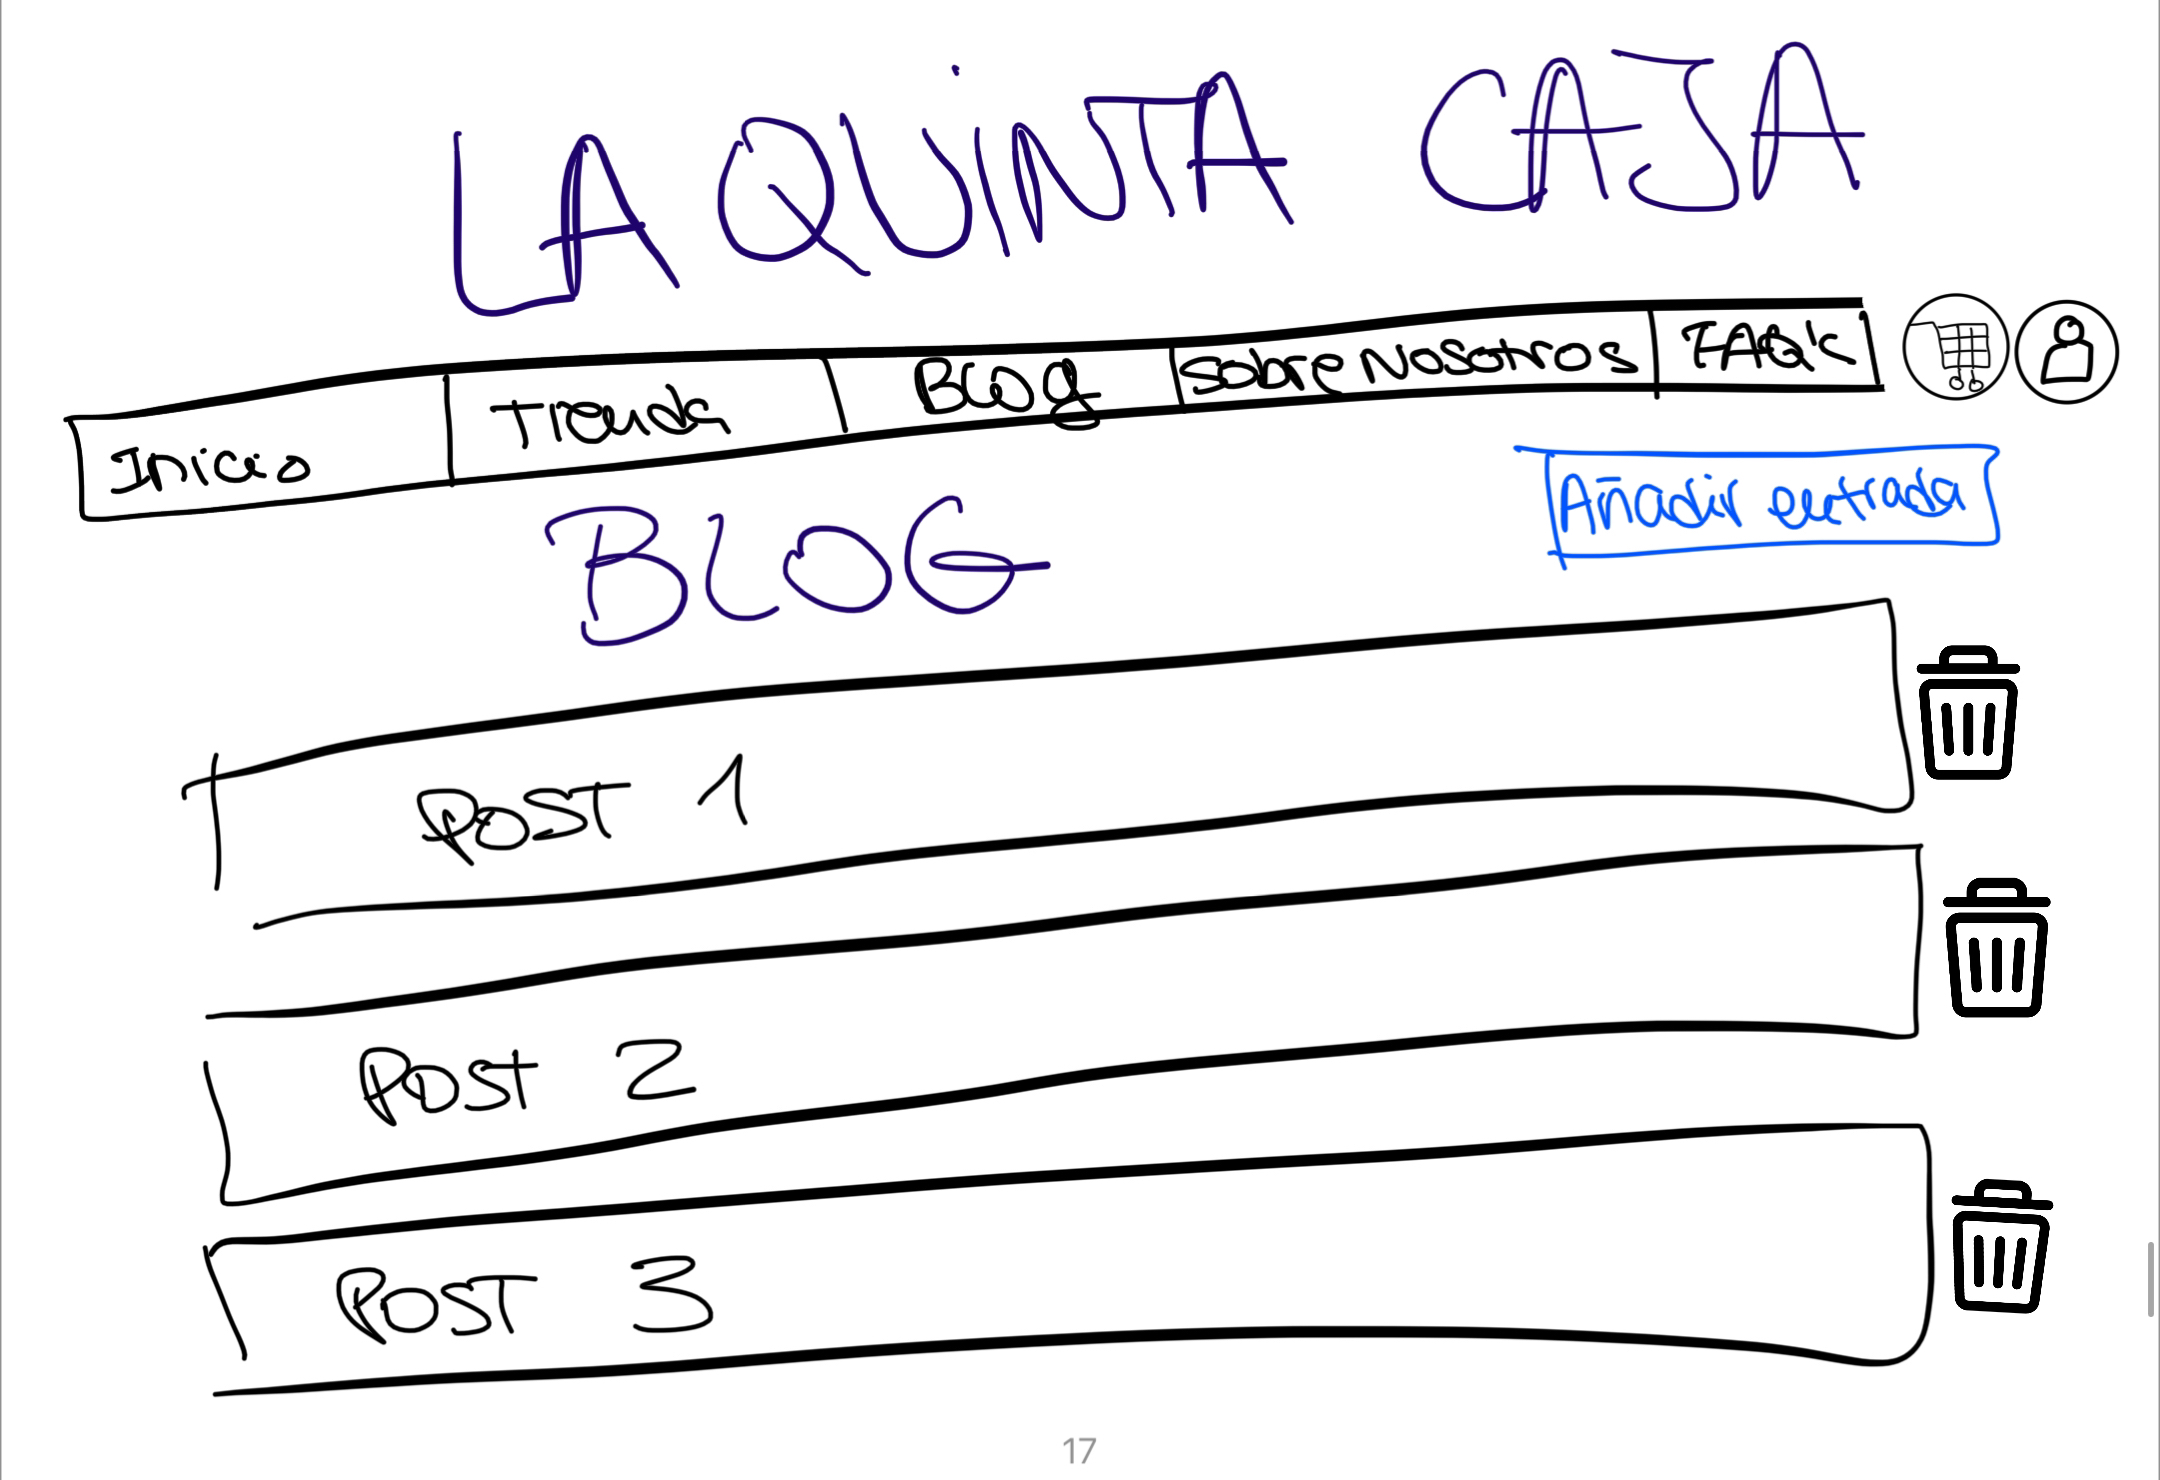 LA QUINTA CAJA
Inicio Tienda Blog Sobre Nosotros FAQ's
Añadir entrada
BLOG
POST 1
POST 2
POST 3
17